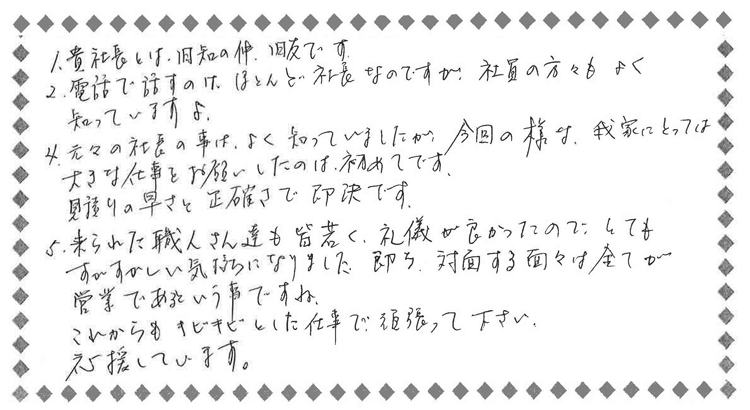 1. 貴社長とは、旧知の仲、旧友です。
2. 電話で話すのは、ほとんど社長なのですが、社員の方々もよく
知っていますよ。
4. 元々の社長の事は、よく知っていましたが、今回の様な、我家にとっては
大きな仕事をお願いしたのは、初めてです。
見積りの早さと正確さで即決です。
5. 来られた職人さん達も皆若く、礼儀が良かったので、とても
すがすがしい気持ちになりました。即ち、対面する面々は全てが
営業であるという事ですね。
これからもキビキビとした仕事で頑張って下さい。
応援しています。